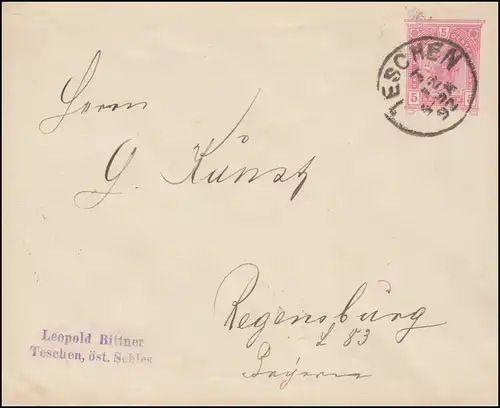 TESCHEN
92
5
5
5
Herrn
G. Künst
Regensburg
L 83
Bayern
Leopold Bittner
Teschen, öst. Schles.